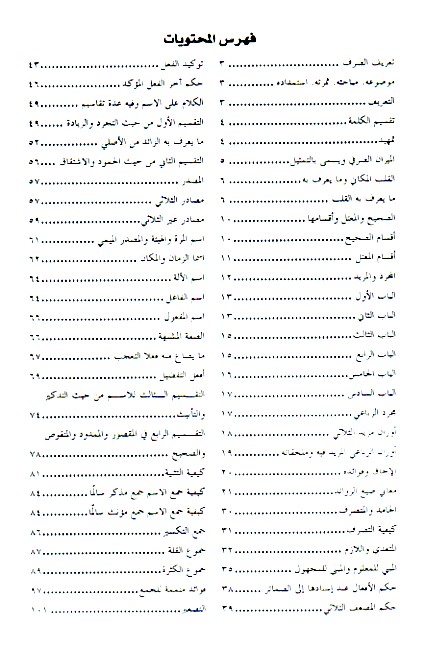 فهرس المحتويات
تعريف الصرف ٣
موضوعه. مباحثه. ثمرته. استمداده ٣
التعريف ٣
تقسيم الكلمة ٤
تمهيد ٤
الميزان الصرفي ويسمى بالتمثيل ٥
القلب المكاني وما يعرف به ٦
ما يعرف به القلب ٦
الصحيح والمعتل وأقسامها ١٠
أقسام الصحيح ١٠
أقسام المعتل ١١
المجرد والمزيد ١٢
الباب الأول ١٣
الباب الثاني ١٣
الباب الثالث ١٥
الباب الرابع ١٥
الباب الخامس ١٦
الباب السادس ١٧
مجرد الرباعي ١٧
أوزان مزيد الثلاثي ١٨
أوزان الرباعي المزيد فيه وملحقاته ١٩
الإلحاق وفوائده ٢٠
معاني صيغ الزوائد ٢١
الجامد والمتصرف ٣٠
كيفية التصرف ٣١
المتعدي واللازم ٣٢
المبني للمعلوم والمبني للمجهول ٣٥
حكم الأفعال عند إسنادها إلى الضمائر ٣٨
حكم المضعف الثلاثي ٣٩
توكيد الفعل ٤٣
حكم آخر الفعل المؤكد ٤٦
الكلام على الاسم وفيه عدة تقاسيم ٤٩
التقسيم الأول من حيث التجرد والزيادة ٤٩
ما يعرف به الزائد من الأصلي ٥٢
التقسيم الثاني من حيث الجمود والاشتقاق ٥٦
المصدر ٥٧
مصادر الثلاثي ٥٧
مصادر غير الثلاثي ٥٩
اسم المرة والهيئة والمصدر الميمي ٦١
اسما الزمان والمكان ٦٢
اسم الآلة ٦٤
اسم الفاعل ٦٤
اسم المفعول ٦٦
الصفة المشبهة ٦٦
ما يصاغ منه فعلا التعجب ٦٧
أفعل التفضيل ٦٩
التقسيم الثالث للاسم من حيث التذكير
والتأنيث ٧٤
التقسيم الرابع في المقصور والممدود والمنقوص
والصحيح ٧٨
كيفية التثنية ٨١
كيفية جمع الاسم جمع مذكر سالمًا ٨٤
كيفية جمع الاسم جمع مؤنث سالمًا ٨٤
جمع التكسير ٨٦
جموع القلة ٨٧
جموع الكثرة ٨٩
فوائد متممة للجمع ٩٧
التصغير ١٠١